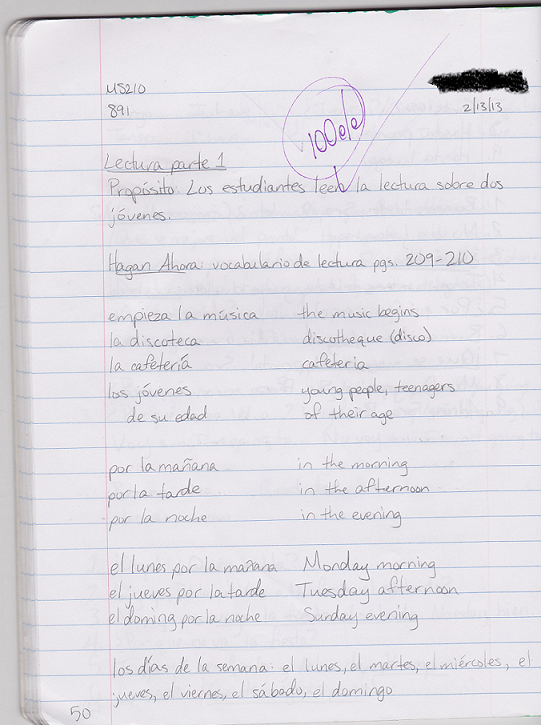 MS210
891
2/13/13
100%
Lectura parte 1
Propósito: Los estudiantes leen la lectura sobre dos
jóvenes.
Hagan Ahora: vocabulario de lectura pgs. 209-210
empieza la música the music begins
la discoteca discotheque (disco)
la cafetería cafeteria
los jóvenes young people, teenagers
de su edad of their age
por la mañana in the morning
por la tarde in the afternoon
por la noche in the evening
el lunes por la mañana Monday morning
el jueves por la tarde Tuesday afternoon
el doming por la noche Sunday evening
los días de la semana: el lunes, el martes, el miércoles, el
jueves, el viernes, el sábado, el domingo
50